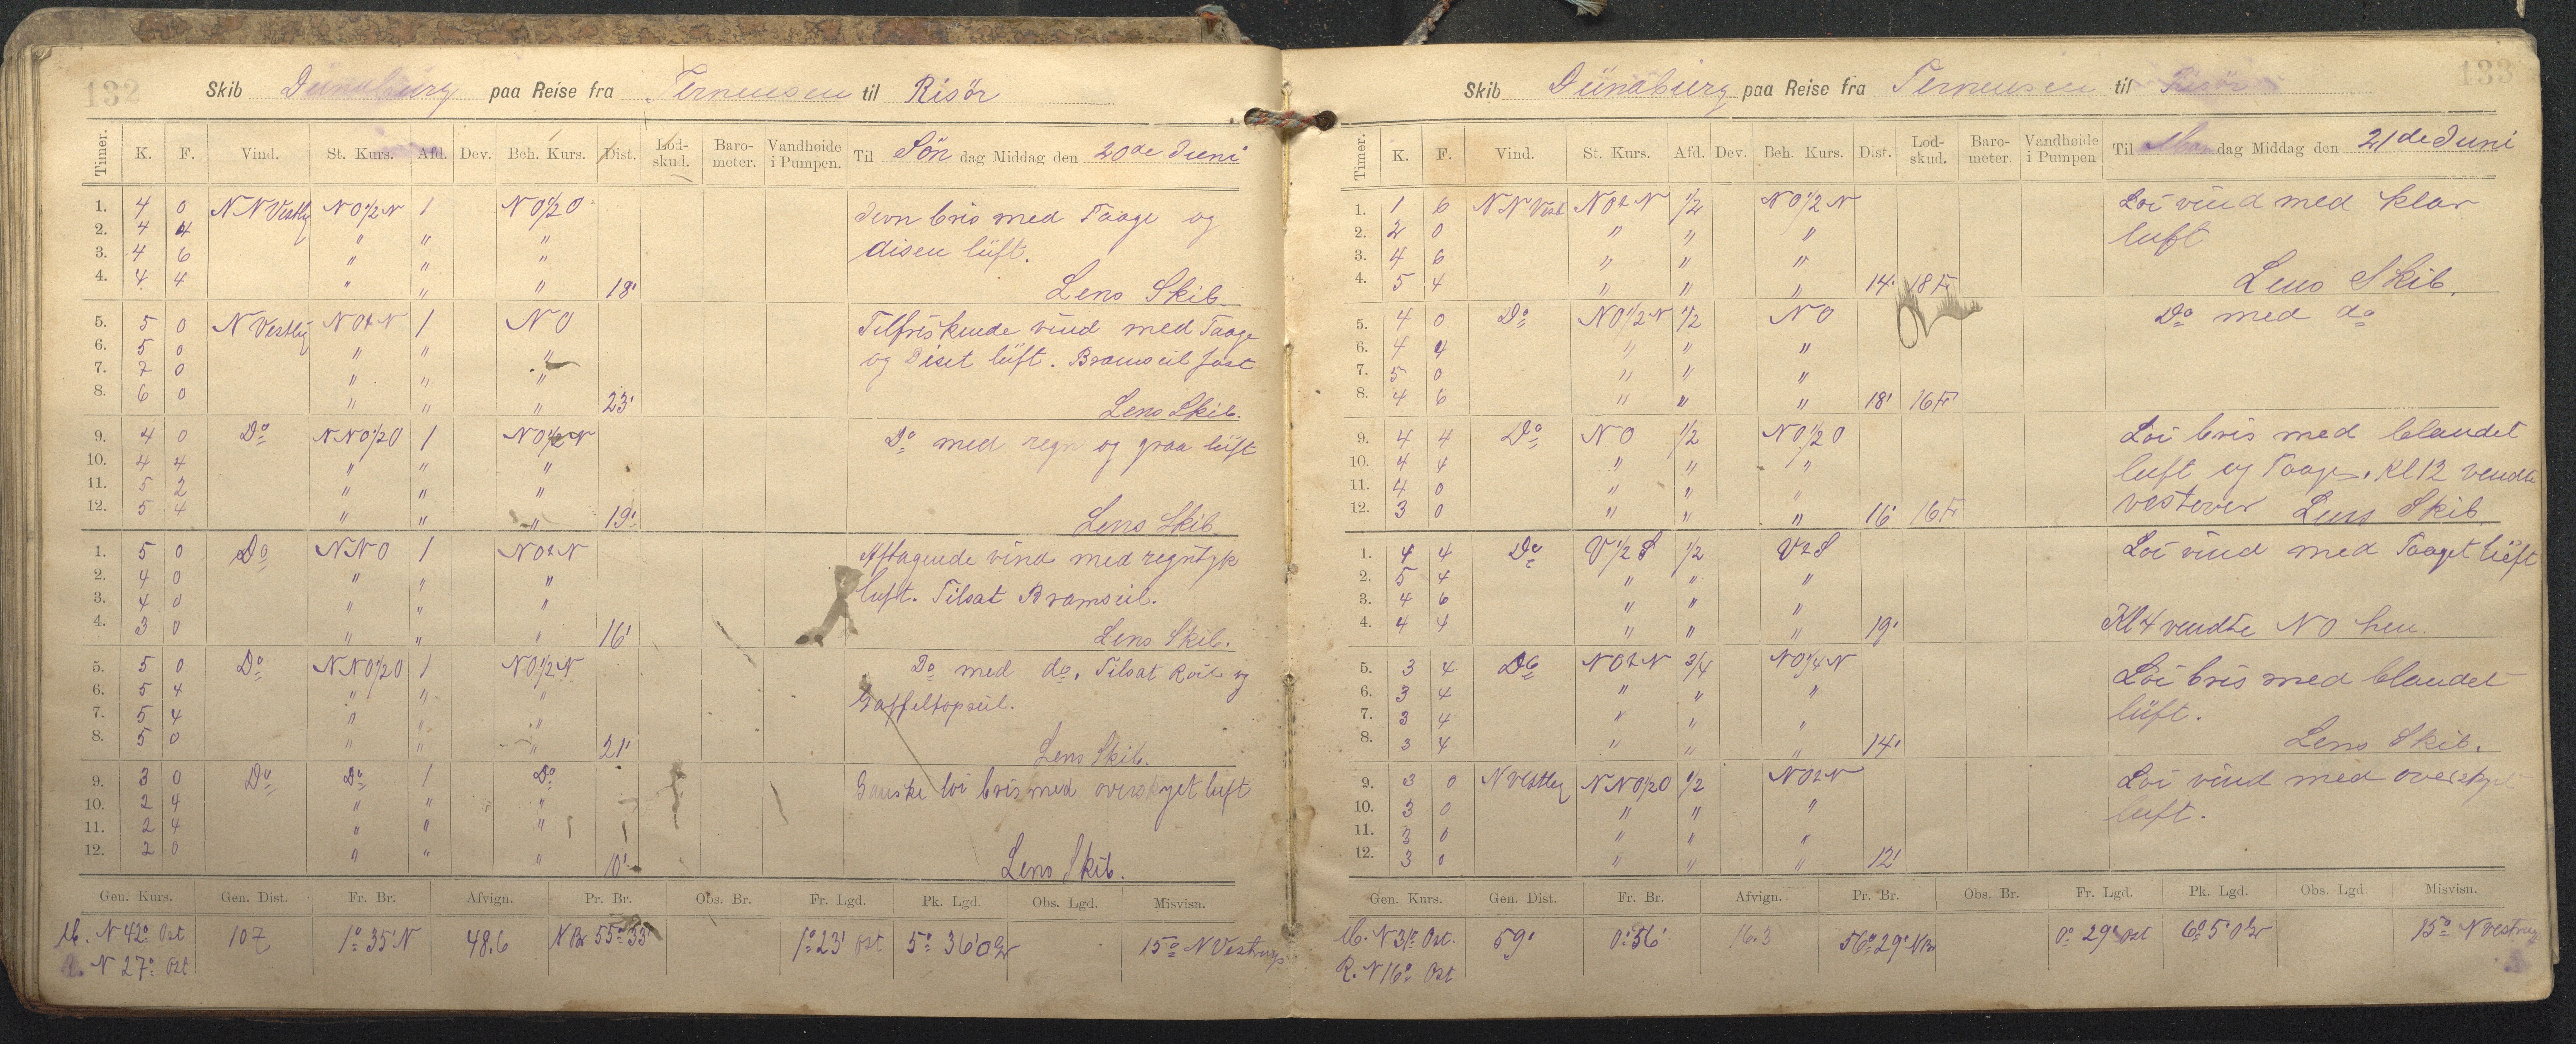 132
Skib Dünaburg paa Reise fra Terneusen til Risör
Timer. K. F. Vind. St. Kurs. Afd. Dev. Beh. Kurs. Dist. Lod-skud. Baro-meter. Vandhøide i Pumpen. Til Søn dag Middag den 20de Juni
1. 4 0 NNVestlig NO½N 1 NO½O Jevn bris med Taage og
2. 4 4 " " "
3. 4 6 " " " disen lüft.
4. 4 4 " " " 18' Lens Skib.
5. 5 0 NVestlig NOtN 1 NO Tilfriskende vind med Taage
6. 5 0 " " " og Diset lüft. Bramseil fast
7. 7 0 " " "
8. 6 0 " " " 23' Lens Skib.
9. 4 0 Do NNO½O 1 NO½N Do med regn og graa lüft
10. 4 4 " " "
11. 5 2 " " "
12. 5 4 " " " 19' Lens Skib.
1. 5 0 Do NNO 1 NOtN Aftagende vind med regntyk
2. 4 0 " " " luft. Tilsat Bramseil.
3. 4 0 " " "
4. 3 0 " " " 16' Lens Skib.
5. 5 0 Do NNO½O 1 NO½N Do med do. Tilsat Roil og
6. 5 4 " " " Gaffeltopseil.
7. 5 4 " " "
8. 5 0 " " " 21' Lens Skib.
9. 3 0 Do Do 1 Do Ganske löi bris med overskyet luft
10. 2 4 " " "
11. 2 4 " " "
12. 2 0 " " " 10' Lens Skib.
Gen. Kurs. Gen. Dist. Fr. Br. Afvign. Pr. Br. Obs. Br. Fr. Lgd. Pk. Lgd. Obs. Lgd. Misvisn.
M. N 42° Ost 107 1° 35' N 48.6 NBr 55° 33' 1° 23' Ost 5° 36' 15° NVestrup
R. N 27° Ost
133
Skib Dünaburg paa Reise fra Terneusen til Risör
Timer. K. F. Vind. St. Kurs. Afd. Dev. Beh. Kurs. Dist. Lod-skud. Baro-meter Vandhøide i Pumpen Til Man dag Middag den 21de Juni
1. 1 6 NNVest NOtN ½ NO½N Löi vind med klar
2. 2 0 " " " luft
3. 4 6 " " "
4. 5 4 " " " 14' 18 F Lens Skib.
5. 4 0 Do NO½N ½ NO Do med do
6. 4 4 " " "
7. 5 0 " " "
8. 4 6 " " " 18' 16 F
9. 4 4 Do NO ½ NO½O Löi bris med blandet
10. 4 4 " " " luft og Taage. Kl 12 vendte
11. 4 0 " " "
12. 3 0 " " " 16' 16 F vestover Lens Skib.
1. 4 4 Do V½S ½ VtS Löi vind med Taaget lüft
2. 5 4 " " "
3. 4 6 " " "
4. 4 4 " " " 19' Kl 4 vendte NO hen.
5. 3 4 Do NOtN 3/4 NO¼N Löi bris med blandet
6. 3 4 " " " lüft.
7. 3 4 " " "
8. 3 4 " " " 14' Lens Skib.
9. 3 0 NVestlig NNO½O ½ NOtN Löi vind med overskyet
10. 3 0 " " " luft.
11. 3 0 " " "
12. 3 0 " " " 12'
Gen. Kurs. Gen. Dist. Fr. Br. Afvign. Pr. Br. Obs. Br. Fr. Lgd. Pk. Lgd. Obs. Lgd Misvisn.
M. N 31° Ost. 59' 0° 56' 16.3 56° 29' NBr 0° 29' Ost 6° 5' 15° NVestrup
R. N 16° Ost